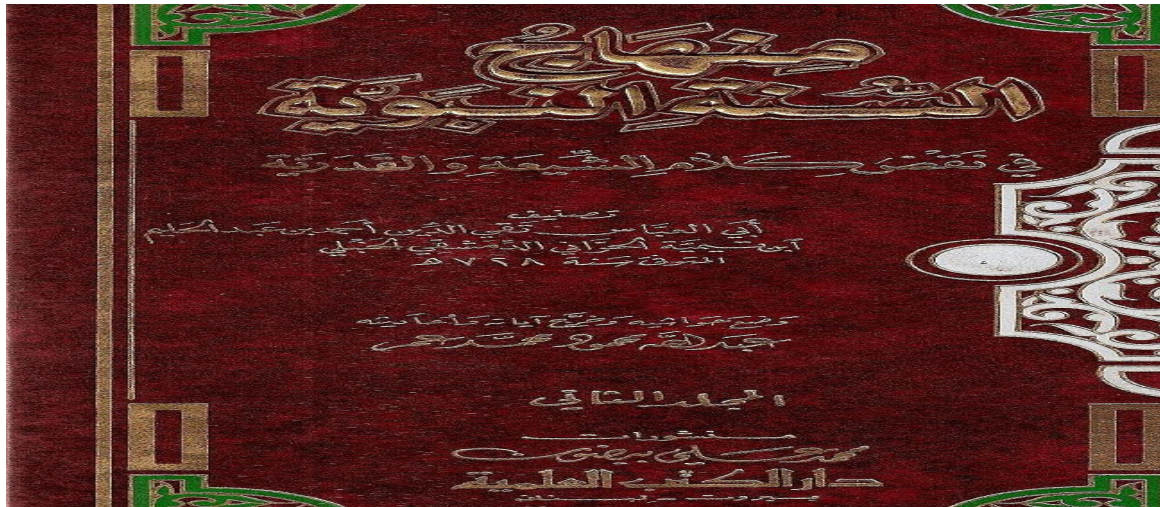 منهاج
السنة النبوية
في نقض كلام الشيعة والقدرية
تصنيف
أبي العباس تقي الدين أحمد بن عبد الحليم
ابن تيمية الحراني الدمشقي الحنبلي
المتوفى سنة ٧٢٨ ه
وضع حواشيه وخرج آياته وأحاديثه
عبد الله محمود محمد عمر
المجلد الثاني
منشورات
محمد علي بيضون
دار الكتب العلمية
بيروت - لبنان